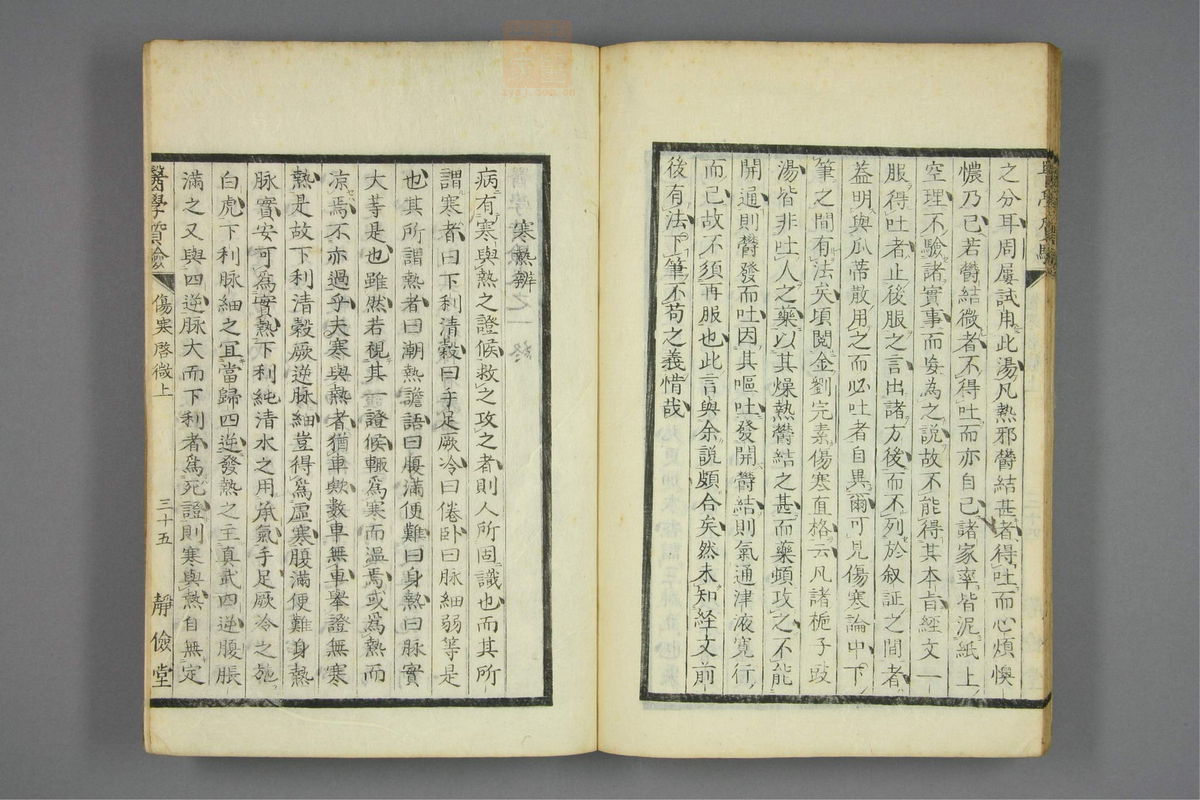 之分耳周屢試用此湯凡熱邪欝結甚者得吐而心煩懊
憹乃已若欝結微者不得吐而亦自已諸家率皆泥紙上
空理不驗諸實事而妄為之說故不能得其本旨經文一
服得吐者止後服之言出諸方後而不列於叙証之間者
益明與瓜蒂散用之而必吐者自異爾可見傷寒論中下
筆之間有法矣項閱金劉完素傷寒直格云凡諸梔子豉
湯皆非吐人之藥以其燥熱欝結之甚而藥頓攻之不能
開通則欝發而吐因其嘔吐發開欝結則氣通津液寬行
而已故不須再服也此言與余說頗合矣然未知経文前
後有法下筆不苟之義惜哉
寒熱辨
病有寒與熱之證候救之攻之者則人所固識也而其所
謂寒者曰下利清穀曰手足厥冷曰倦卧曰脉細弱等是
也其所謂熱者曰潮熱譫語曰腹滿便難曰身熱曰脉實
大等是也雖然若視其證候輙為寒而温焉或為熱而
凉焉不亦過乎夫寒與熱者猶車歟數車無車舉證無寒
熱是故下利清穀厥逆脉細豈得為虛寒腹滿便難身熱
脉實安可為實熱下利純清水之用承氣手足厥冷之施
白虎下利脉細之宜當歸四逆發熱之主真武四逆腹脹
滿之又與四逆脉大而下利者為死證則寒與熱自無定
醫學質驗
傷寒啓微上
三十五
靜儉堂